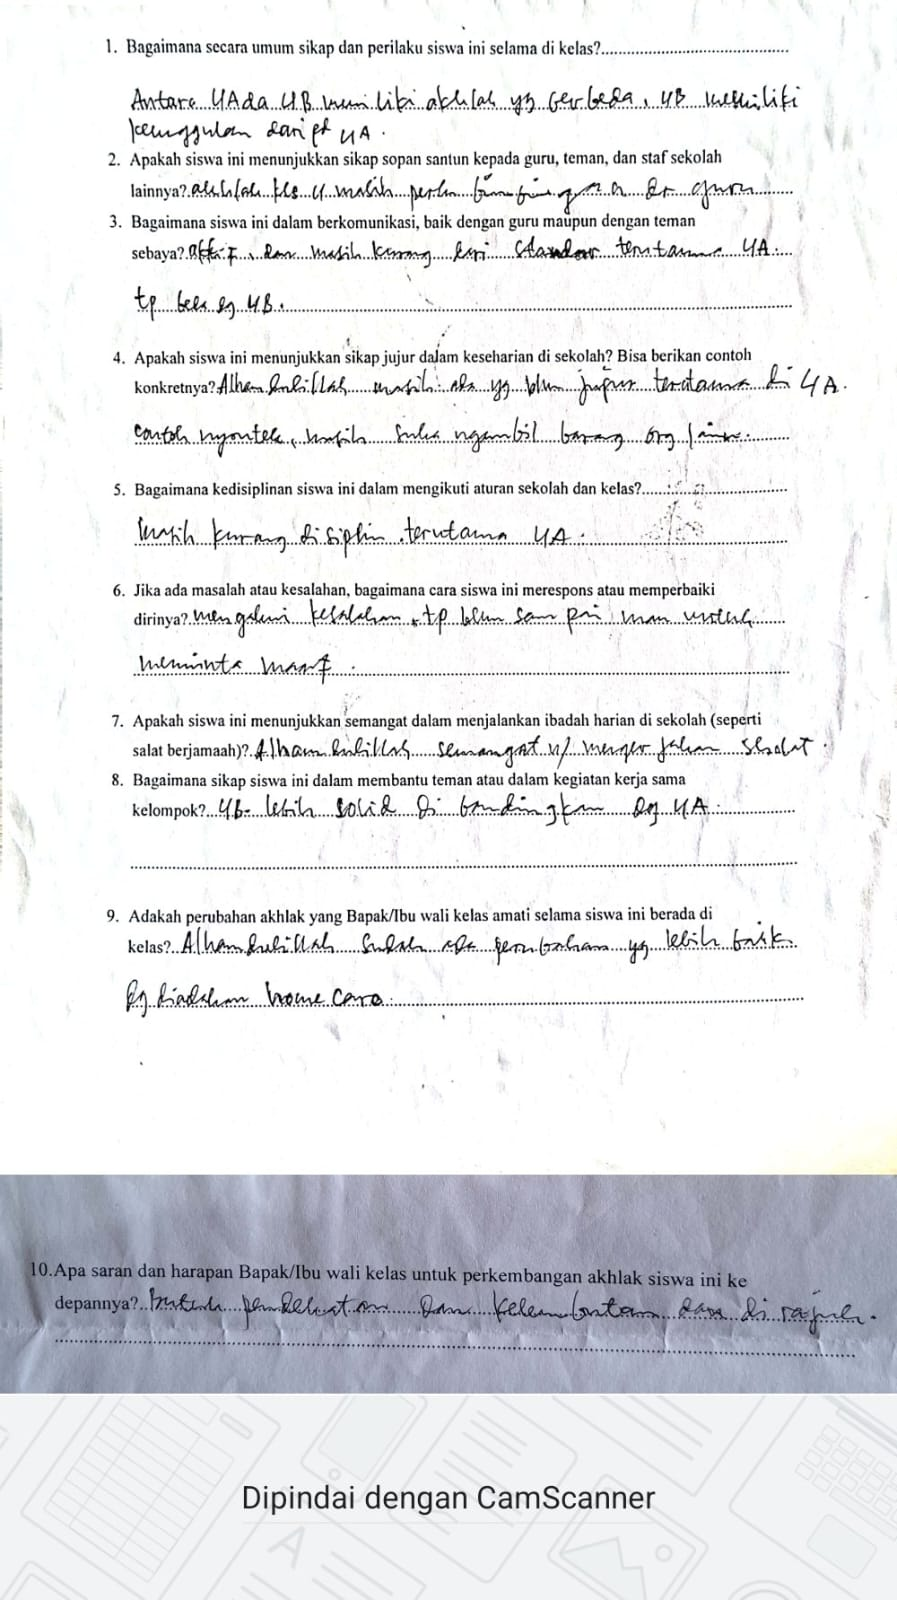 1. Bagaimana secara umum sikap dan perilaku siswa ini selama di kelas?
Antara 4A da 4B memiliki akhlak yg berbeda, 4B memiliki
keunggulan dari pd 4A.
2. Apakah siswa ini menunjukkan sikap sopan santun kepada guru, teman, dan staf sekolah
lainnya? akhlak kls 4 masih perlu bimbingan dr guru
3. Bagaimana siswa ini dalam berkomunikasi, baik dengan guru maupun dengan teman
sebaya? aktif, dan masih kurang dari standar terutama 4A.
tp beda dg 4B.
4. Apakah siswa ini menunjukkan sikap jujur dalam keseharian di sekolah? Bisa berikan contoh
konkretnya? Alhamdulillah masih ada yg blum jujur terutama di 4A.
contoh nyontek, masih suka ngambil barang org lain.
5. Bagaimana kedisiplinan siswa ini dalam mengikuti aturan sekolah dan kelas?
masih kurang disiplin terutama 4A.
6. Jika ada masalah atau kesalahan, bagaimana cara siswa ini merespons atau memperbaiki
dirinya? mengakui kesalahan, tp blum mau untuk
meminta maaf.
7. Apakah siswa ini menunjukkan semangat dalam menjalankan ibadah harian di sekolah (seperti
salat berjamaah)? Alhamdulillah semangat u/ mengerjakan sholat.
8. Bagaimana sikap siswa ini dalam membantu teman atau dalam kegiatan kerja sama
kelompok? 4B lebih solid di bandingkan dg 4A.
9. Adakah perubahan akhlak yang Bapak/Ibu wali kelas amati selama siswa ini berada di
kelas? Alhamdulillah sudah ada perubahan yg lebih baik
dg diadakan home care.
10.Apa saran dan harapan Bapak/Ibu wali kelas untuk perkembangan akhlak siswa ini ke
depannya? butuh pendekatan dan kelembutan dan di rangkul.
Dipindai dengan CamScanner